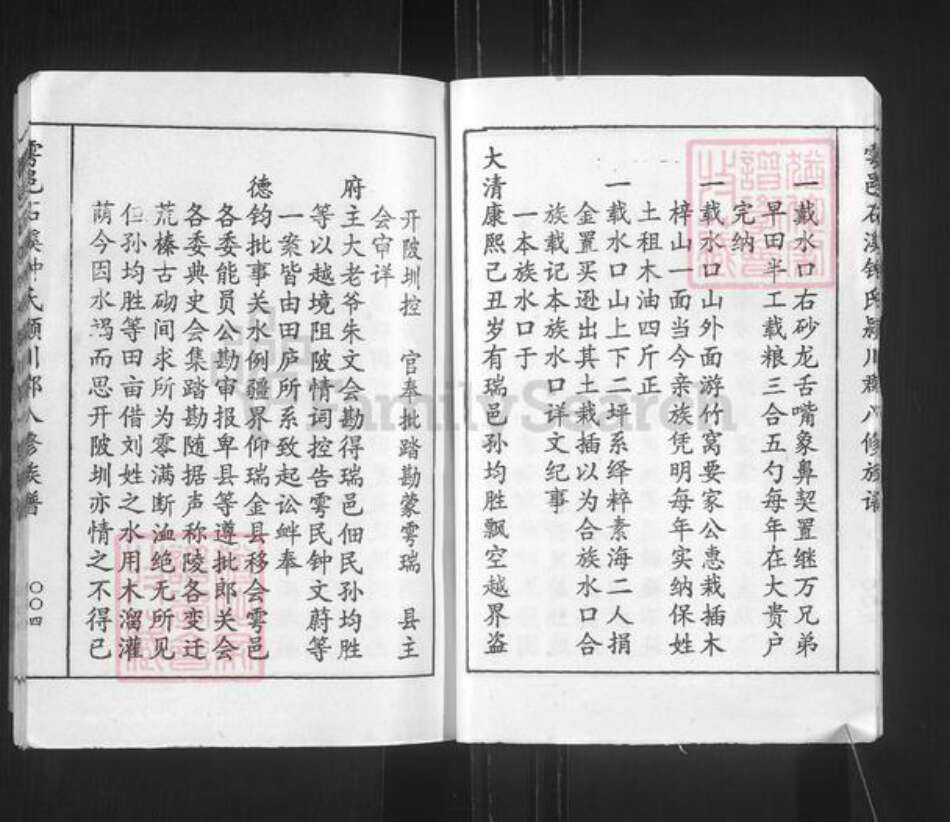 一戴水口右砂龙舌嘴象鼻契置继万兄弟
早田半工载粮三合五勺每年在大贵户
完纳
一载水口山外面游竹窝要家公惠栽插木
梓山一面当今亲族凭明每年实纳保姓
土租木油四斤正
一载水口山上下二坪系绎粹素海二人捐
金置买逊出其土栽插以为合族水口合
族载记本族水口详文纪事
一本族水口于
大清康熙己丑岁有瑞邑孙均胜飘空越界盗
开陂圳控 官奉批踏勘蒙雩瑞 县主
会审详
府主大老爷朱文会勘得瑞邑佃民孙均胜
等以越境阻陂情词控告雩民钟文蔚等
一案皆由田庐所系致起讼衅奉
德钧批事关水例疆界仰瑞金县移会雩邑
各委能员公勘审报卑县等遵批郎关会
各委典史会集踏勘随据声称陵各变迁
荒榛古砌间求所为零满断洫绝无所见
但孙均胜等田亩借刘姓之水用木溜灌
荫今因水涡而思开陂圳亦情之不得已
雩邑石溪钟氏颍川郡八修族谱
〇〇四
FamilySearch